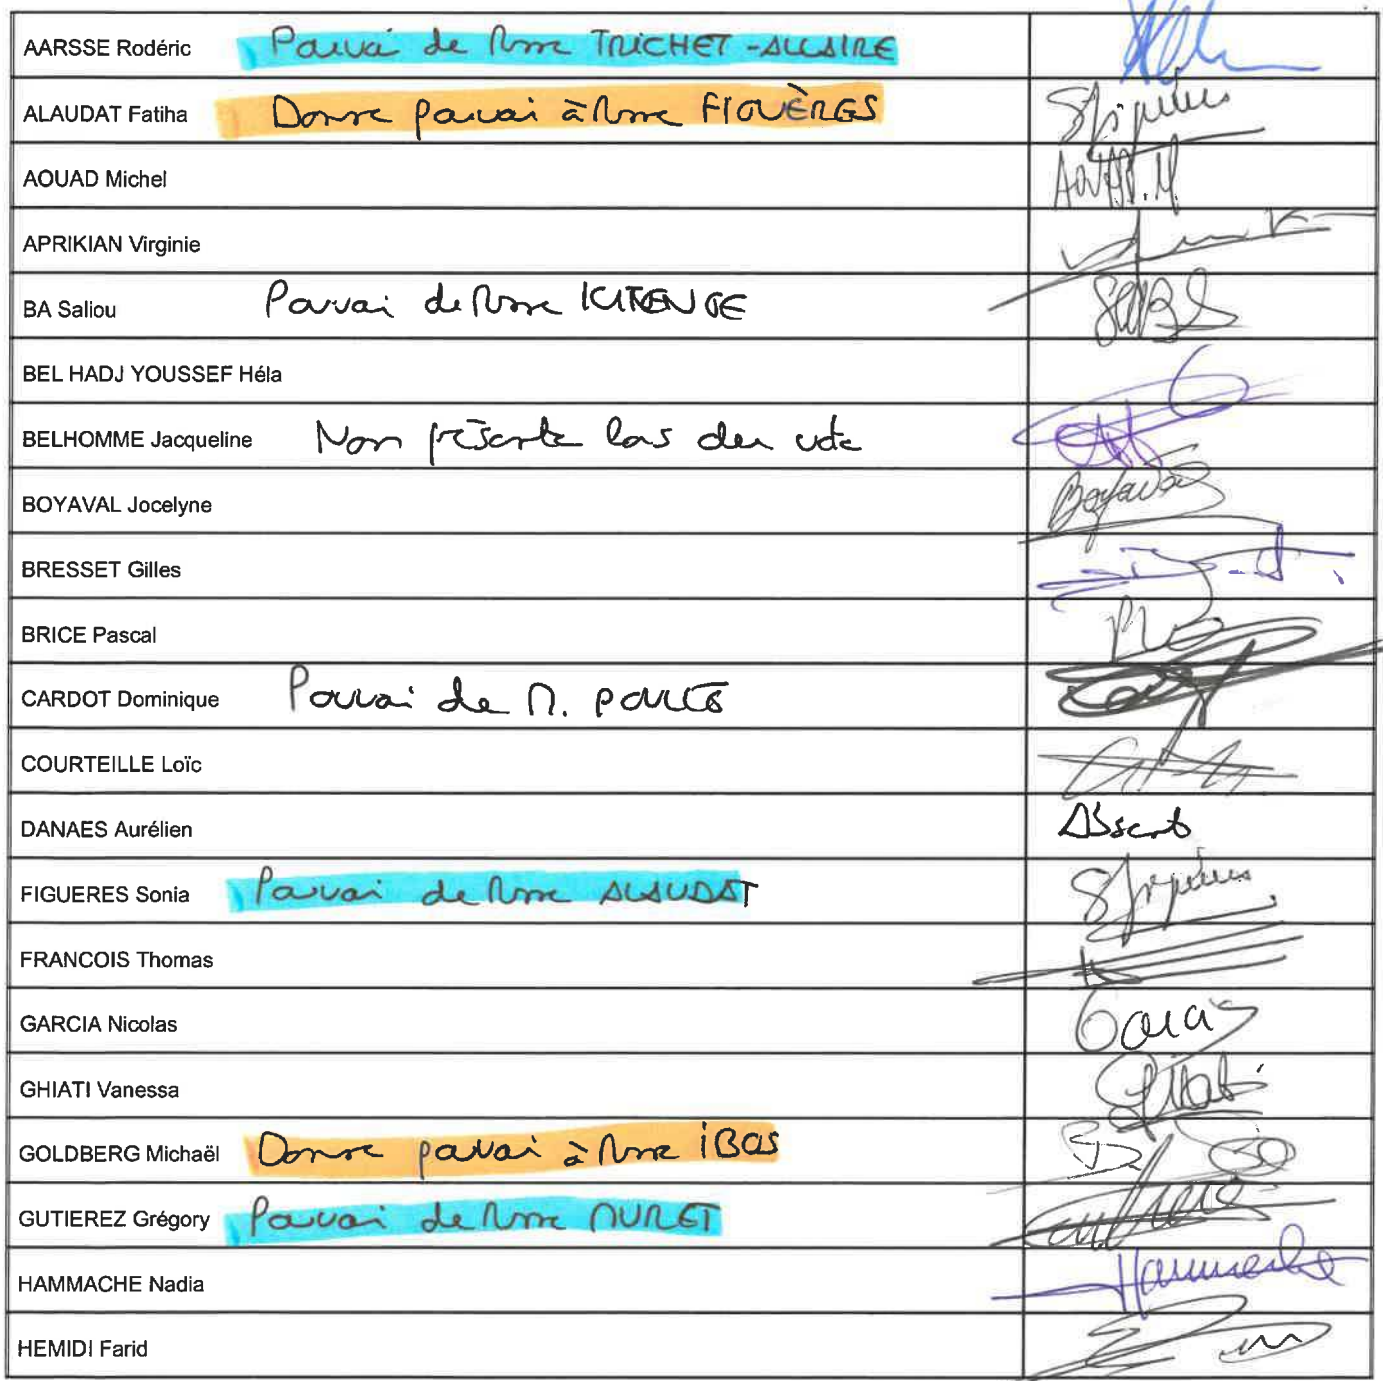 AARSSE Rodéric Pouvoi de Mme TRICHET-ALLAIRE
ALAUDAT Fatiha Donne pouvoi à Mme FIGUÈRES
S figuères
AOUAD Michel AOUAD.M
APRIKIAN Virginie
BA Saliou Pouvoi de Mme KITENGE
BEL HADJ YOUSSEF Héla
BELHOMME Jacqueline Non présente lors du vote
BOYAVAL Jocelyne Boyaval
BRESSET Gilles
BRICE Pascal
CARDOT Dominique Pouvoi de M.
COURTEILLE Loïc
DANAES Aurélien Absent
FIGUERES Sonia Pouvoi de Mme ALAUDAT S figuères
FRANCOIS Thomas
GARCIA Nicolas Garcia
GHIATI Vanessa Ghiati
GOLDBERG Michaël Donne pouvoi à Mme IBOS
GUTIEREZ Grégory Pouvoi de Mme MURET
HAMMACHE Nadia Hammache
HEMIDI Farid